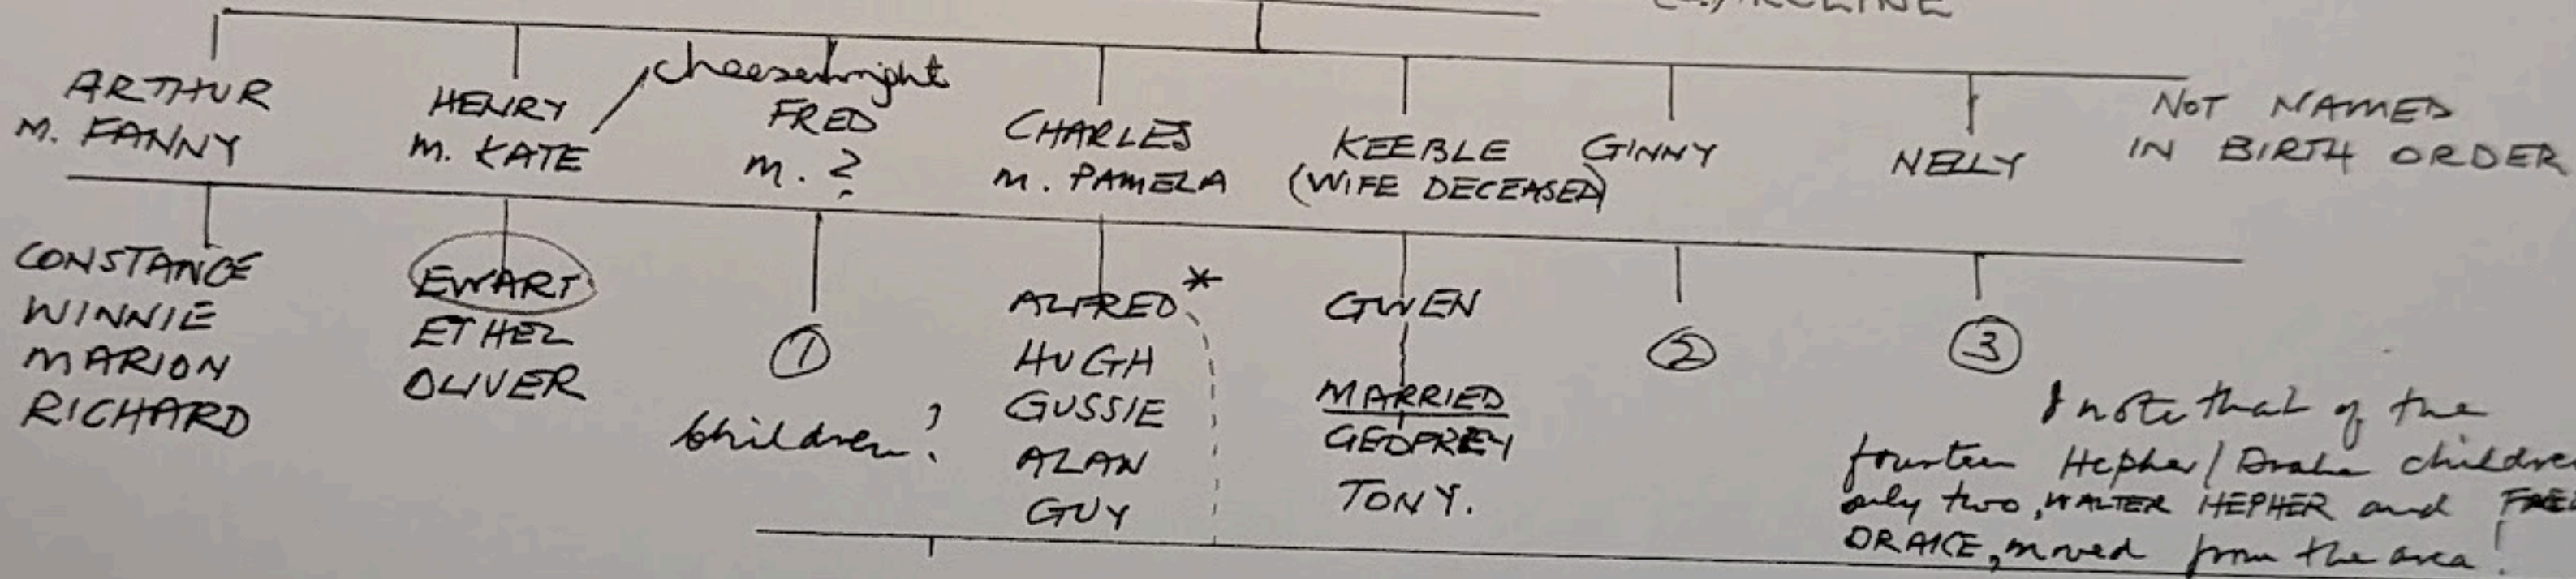 ARTHUR
M. FANNY
HENRY
M. KATE
Cheesewright
FRED
M. ?
CHARLES
M. PAMELA
KEEBLE
(WIFE DECEASED)
GINNY
NELLY
NOT NAMED
IN BIRTH ORDER
CONSTANCE
WINNIE
MARION
RICHARD
EWART
ETHEL
OLIVER
①
Children?
ALFRED *
HUGH
GUSSIE
ALAN
GUY
GWEN
MARRIED
GEOFREY
TONY.
②
③
I note that of the
fourteen Hepher/Drake children
only two, WALTER HEPHER and FRED
DRAKE, moved from the area!